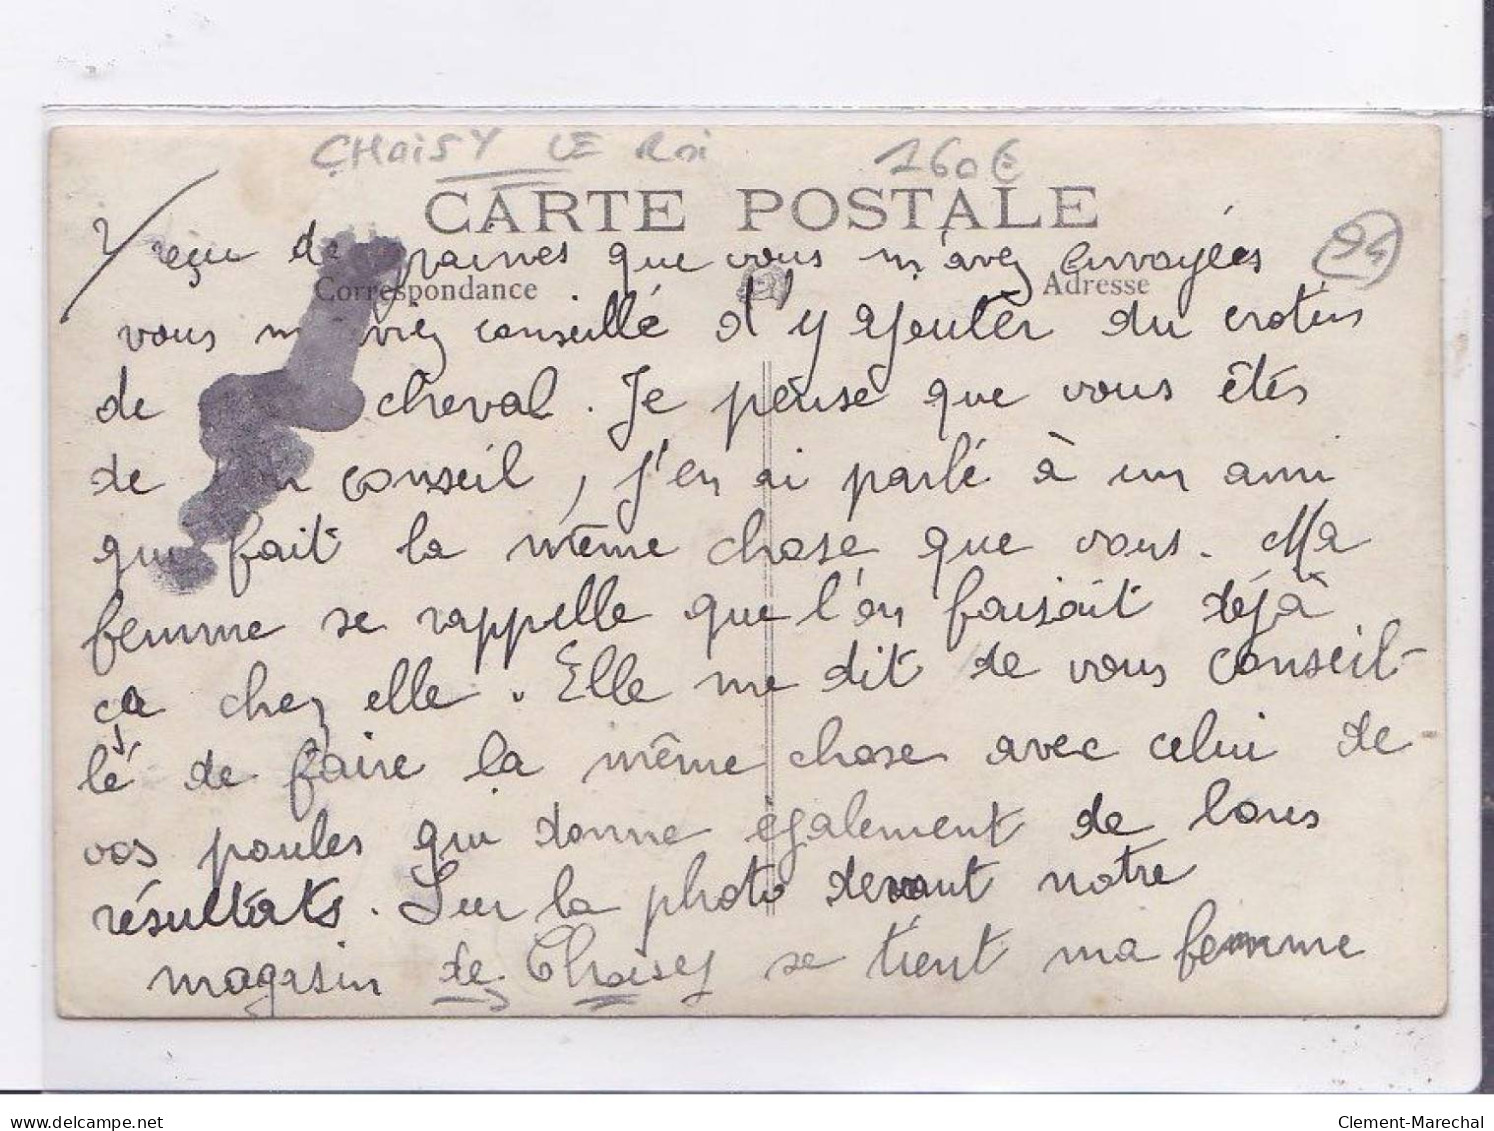 CHOISY LE Roi 160€
CARTE POSTALE
2/ reçu de graines que vous m'avez envoyées
94
Correspondance Adresse
vous m'aviez conseillé d'y ajouter du crotin
de cheval. Je pense que vous êtés
de conseil, j'en ai parlé à un ami
qui fait la même chose que vous. Ma
femme se rappelle que l'on faisait déjà
ça chez elle. Elle me dit de vous conseil-
lé de faire la même chose avec celui de
vos poules qui donne également de bons
résultats. Sur la photo devant notre
magasin de Choisey se tient ma femme
www.delcampe.net
Clement-Marechal